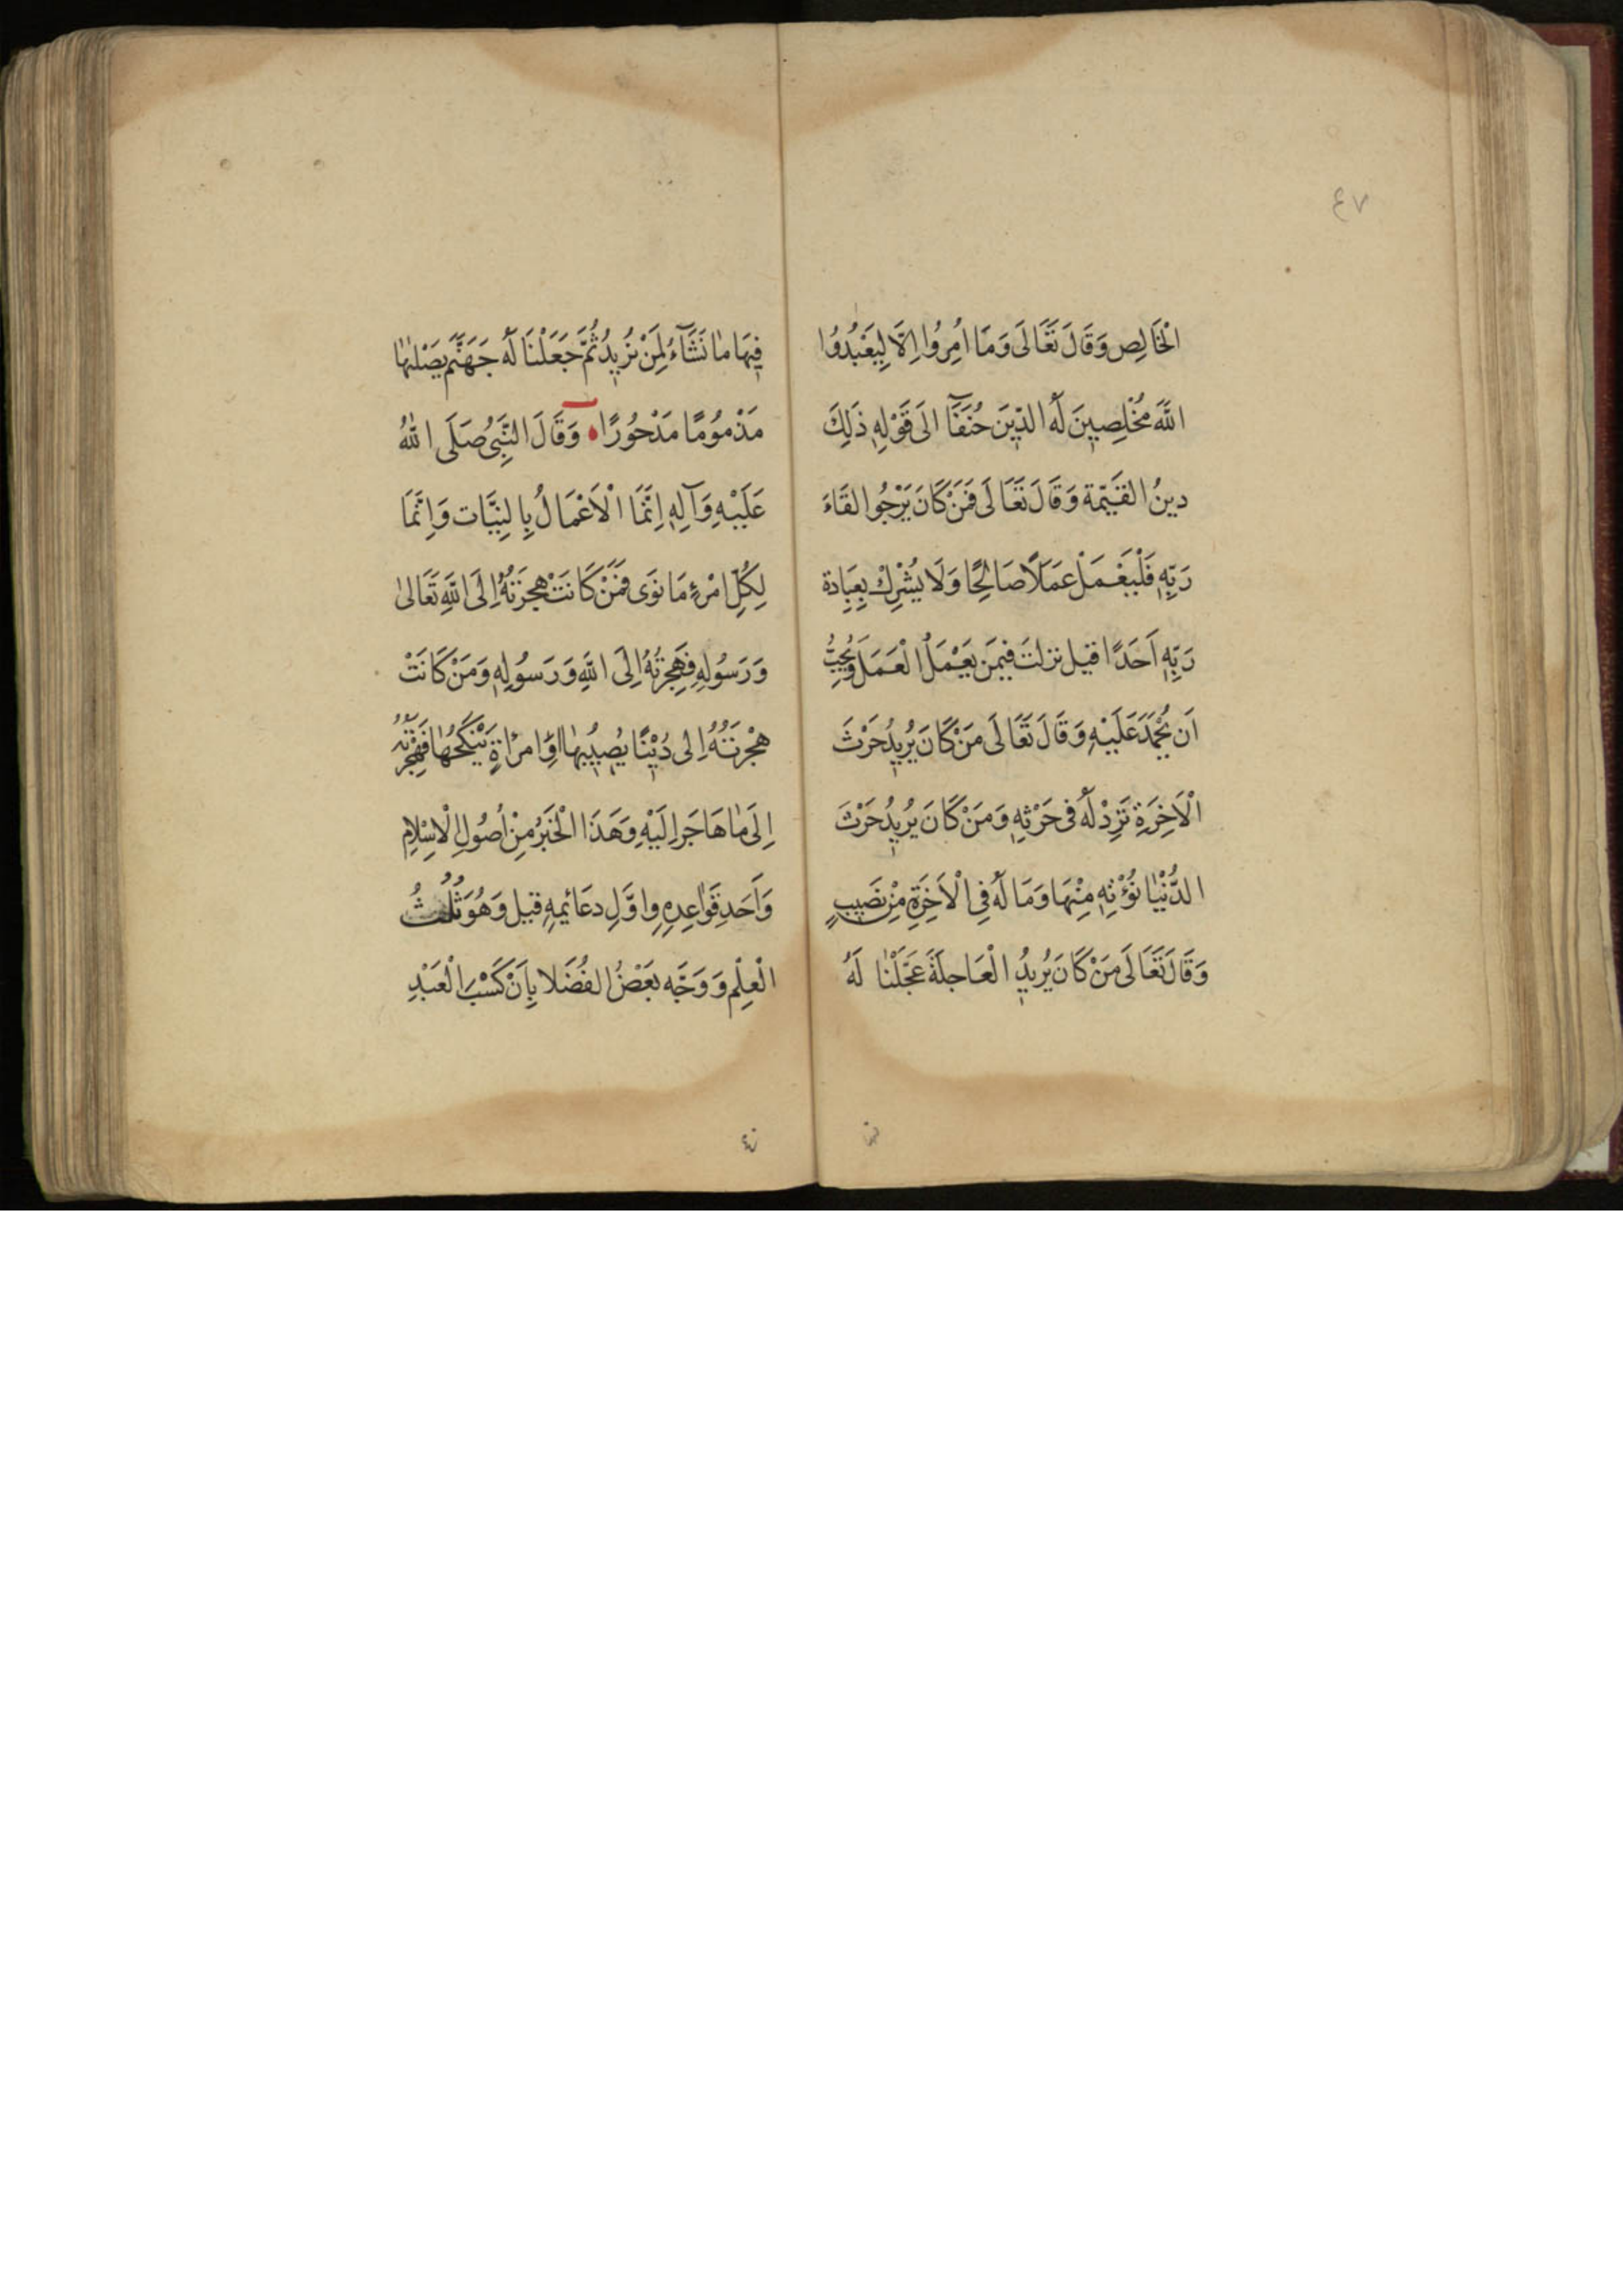 ٤٧
الْخَالِصِ وَقَالَ تَعَالَى وَمَا اُمِرُوا اِلَّا لِيَعْبُدُوا
اللَّهَ مُخْلِصِينَ لَهُ الدِّينَ حُنَفَآءَ الَى قَوْلِهِ ذَلِكَ
دينُ القَيِّمَة وَقَالَ تَعَالَى فَمَنْ كَانَ يَرْجُوا لقَاءَ
رَبِّهِ فَلْيَعْمَلْ عَمَلًا صَالِحًا وَلَا يُشْرِكْ بِعِبَادة
رَبِّهِ اَحَدًا قيل نزلتَ فيمَن يَعْمَلُ الْعَمَلَ وَيُحِبُّ
اَن يُحْمَدَ عَلَيْهِ وَقَالَ تَعَالَى مَنْ كَانَ يُرِيدُ حَرْثَ
الْاَخِرَةِ نَزِدْ لَهُ فى حَرْثِهِ وَمَنْ كَانَ يُرِيدُ حَرْثَ
الدُّنْيَا نُؤْتِهِ مِنْهَا وَمَا لَهُ فِى الْاَخِرَةِ مِنْ نَصِيبٍ
وَقَالَ تَعَالَى مَنْ كَانَ يُرِيدُ الْعَاجِلَةَ عَجَّلْنَا لَهُ
فِيهَا مَا نَشَآءُ لِمَنْ نُرِيدُ ثُمَّ جَعَلْنَا لَهُ جَهَنَّمَ يَصْلٰهٰا
مَذْمُومًا مَدْحُورًا ه وَقَالَ النَّبِىُّ صَلَى اللهُ
عَلَيْهِ وَآلِهِ اِنَّمَا الْاَعْمَالُ بِالنِيَّات وَاِنَّمَا
لِكُلِّ امْرِءٍ مَا نَوَى فَمَنْ كَانَتْ هِجرَتُهُ اِلَى اللَّهِ تَعَالىٰ
وَرَسُولِهِ فَهِجرتُهُ اِلَى اللَّهِ وَرَسُولِهِ وَمَنْ كَانَتْ
هِجْرَتُهُ اِلى دُنْيًا يُصِيبُهٰا اَوِ امرْاَةٍ يَنْكَحُهٰا فَهِجْرَتُهُ
اِلَى مٰا هَاجَرَ اِلَيْهِ وَهَذَا الْخَبَرُ مِنْ اُصُولِ الْاِسْلٰامِ
وَاَحَدِ قَوٰاعِدِهِ وَاوَّلِ دعَائِمِهِ قيل وَهُوَ ثُلُثُ
الْعِلْمِ وَوَجَّهَ بَعْضُ الفُضَلا بِاَنَّ كَسْبَ الْعَبْدِ